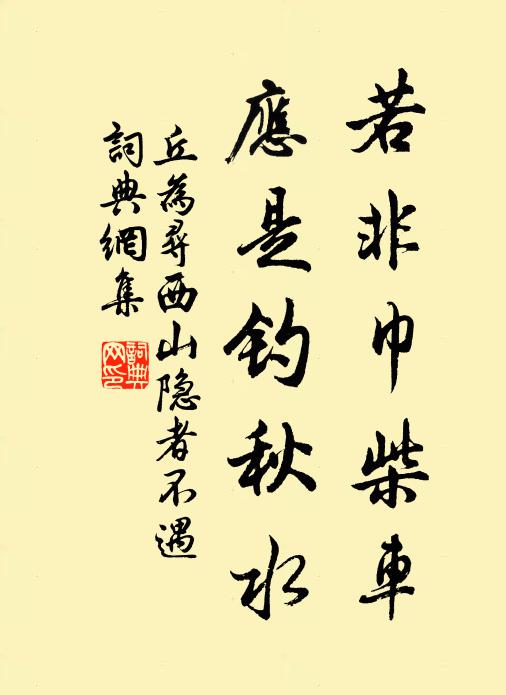 若非巾柴車
應是钓秋水
丘為尋西山隐者不遇
詞典網集
詞典
网印